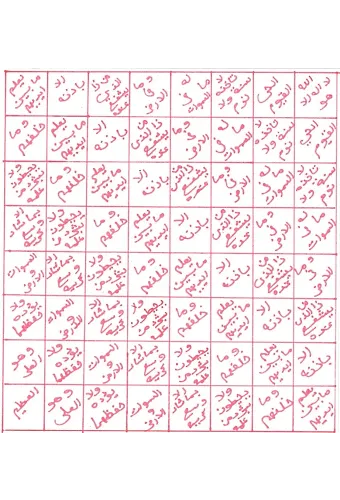 الله لا اله الا هو الحي القيوم لا تأخذه سنة ولا نوم له ما في السموات وما في الارض من ذا الذي يشفع عنده الا باذنه يعلم ما بين ايديهم
الحي القيوم لا تأخذه سنة ولا نوم له ما في السموات وما في الارض من ذا الذي يشفع عنده الا باذنه يعلم ما بين ايديهم وما خلفهم
لا تأخذه سنة ولا نوم له ما في السموات وما في الارض من ذا الذي يشفع عنده الا باذنه يعلم ما بين ايديهم وما خلفهم ولا يحيطون بشيء من علمه
له ما في السموات وما في الارض من ذا الذي يشفع عنده الا باذنه يعلم ما بين ايديهم وما خلفهم ولا يحيطون بشيء من علمه الا بما شاء وسع كرسيه
وما في الارض من ذا الذي يشفع عنده الا باذنه يعلم ما بين ايديهم وما خلفهم ولا يحيطون بشيء من علمه الا بما شاء وسع كرسيه السموات والارض
من ذا الذي يشفع عنده الا باذنه يعلم ما بين ايديهم وما خلفهم ولا يحيطون بشيء من علمه الا بما شاء وسع كرسيه السموات والارض ولا يؤده حفظهما
الا باذنه يعلم ما بين ايديهم وما خلفهم ولا يحيطون بشيء من علمه الا بما شاء وسع كرسيه السموات والارض ولا يؤده حفظهما وهو العلي
يعلم ما بين ايديهم وما خلفهم ولا يحيطون بشيء من علمه الا بما شاء وسع كرسيه السموات والارض ولا يؤده حفظهما وهو العلي العظيم